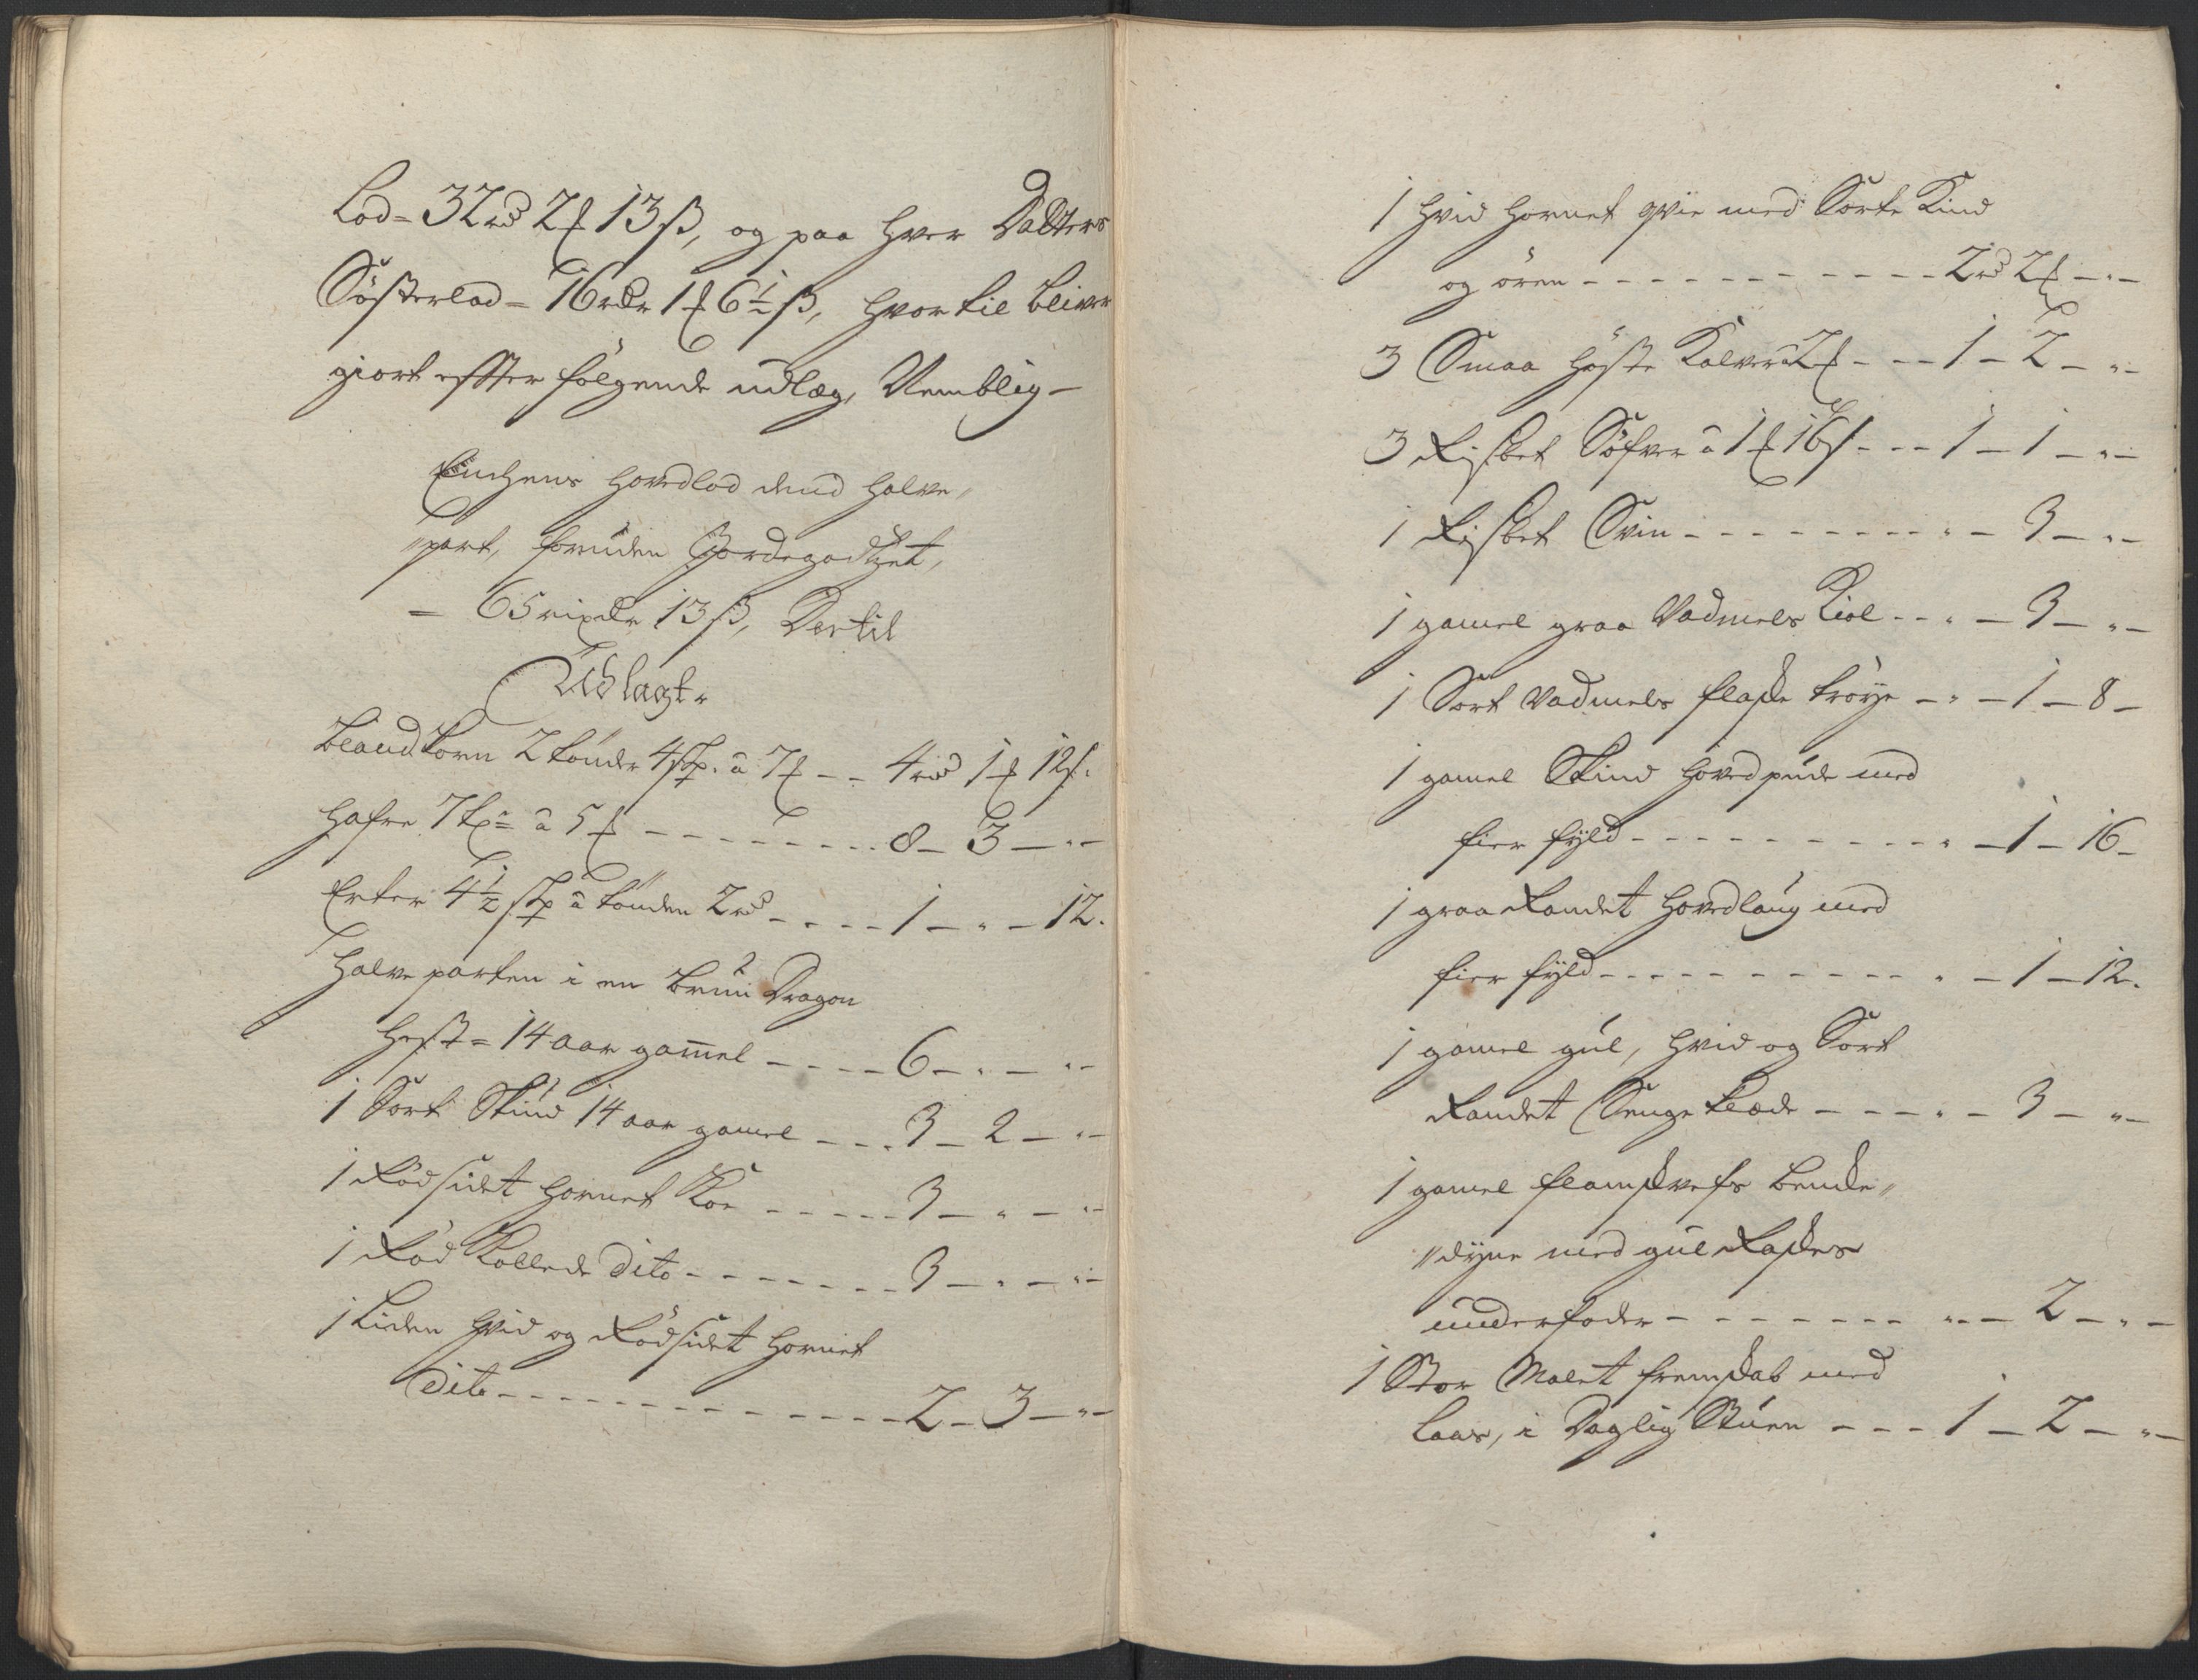 Lod = 32 rd 2 ʄ 13 ß, og paa hver Datters
Søsterlod = 16 rdr 1 ʄ 6½ ß, hvortil bliver
giort efter følgende udlæg, Nemblig -
Enchens hovedlod dend halve„
„part, foruden Jordegodtzet,
- 65 rixdr 13 ß, Dertil
Udlagt
bland Korn 2 tønder 4 skp. â 7 ʄ - - 4 rd 1 ʄ 12 s.
hafre 7 tr â 5 ʄ - - - - - - - - 8 - 3 - „ -
Erter 4½ skp â tønden 2 rd - - - - 1 - „ - 12.
halve parten i en bruun Dragon
hest = 14 aar gam̅el - - - - 6 - „ - „ -
1 Sort Stuud 14 aar gamel - - - 3 - 2 - „ -
1 Rødsidet hornet Koe - - - - - 3 - „ - „ -
1 Rød Kollede dito - - - - - - - 3 - „ - „ -
1 Liden hvid og Rødsidet hornet
dito - - - - - - - - - - - - 2 - 3 - „ -
1 hvid hornet qvie med Sorte Kind
og ören - - - - - - - - - - - 2 rd 2 ʄ - „ -
3 Smaa høste Kalver â 2 ʄ - - - 1 - 2 - „ -
3 Risbet Søfver â 1 ʄ 16 s - - - 1 - 1 - „ -
1 Risbet Sviin - - - - - - - - - „ - 3 - „ -
1 gamel graa Vadmels Kiol - - „ - 3 - „ -
1 Sort Vadmels flaske trøye - „ - 1 - 8 -
1 gamel Skind hovedpude med
fier fyld - - - - - - - - - - „ - 1 - 16 -
1 graa Randet hovedlaug med
fier fyld - - - - - - - - - - „ - 1 - 12.
1 gamel gul, hvid og Sort
Randet Senge Klæde - - - - „ - 3 - „ -
1 gamel flamskvefs benke„
„dyne med gul Raskes
underfoder - - - - - - - „ - 2 - „ -
1 Stor Malet fremskab med
Laas, i Daglig Stuen - - - 1 - 2 - „ -